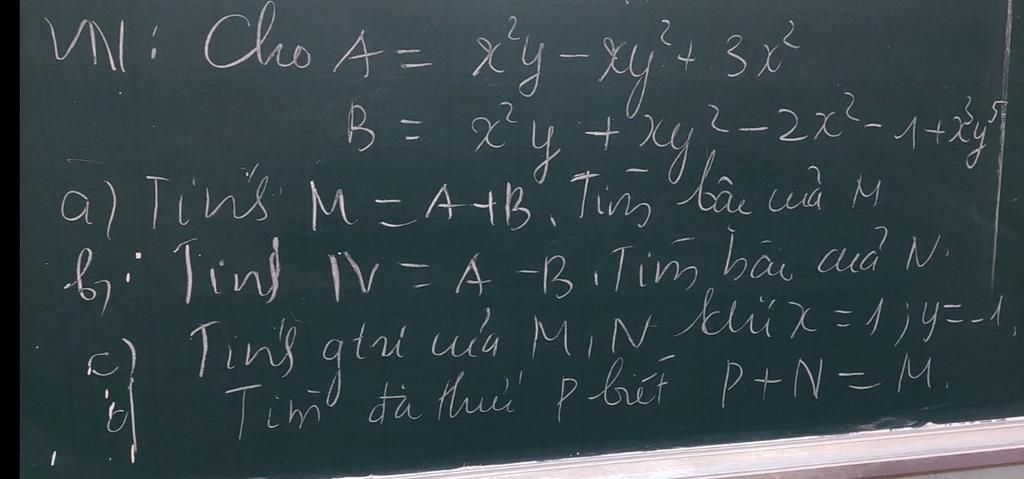 VN: Cho A = x²y - xy² + 3x²
B = x²y + xy² - 2x² - 1 + x³y⁵
a) Tính M = A+B. Tìm bậc của M
b) Tính N = A - B. Tìm bậc của N.
c) Tính gtrị của M, N khi x = 1; y = -1.
d) Tìm đa thức P biết P + N = M.